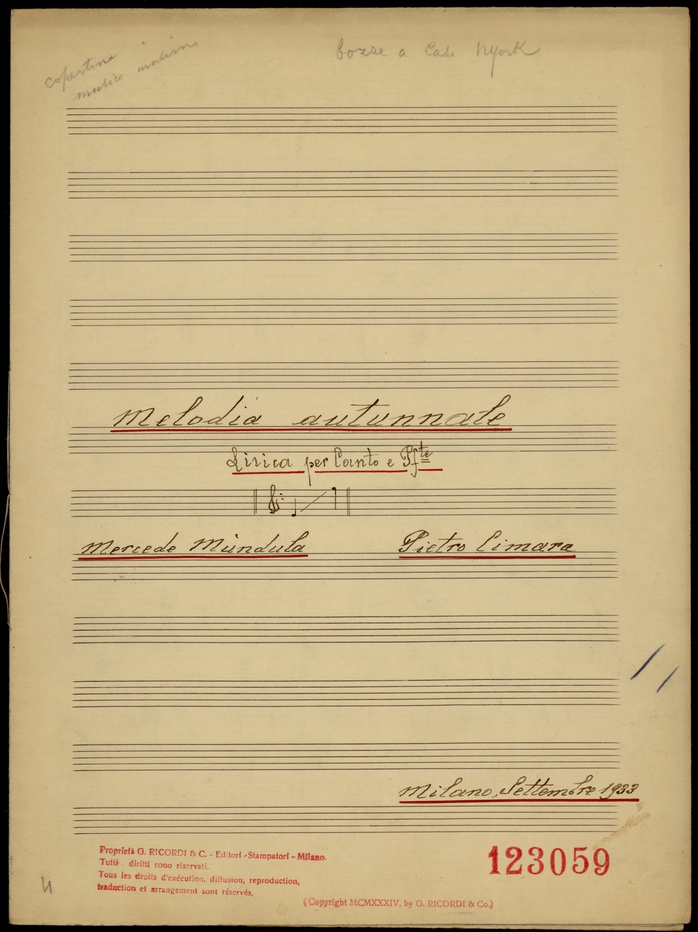 copertina
musica
bozze a Casa NYork
Melodia autunnale
Lirica per Canto e Pfte
Mercede Mùndula Pietro Cimara
Milano, Settembre 1933
Proprietà G. RICORDI & C. - Editori-Stampatori - Milano.
Tutti diritti sono riservati.
Tous les droits d'exécution, diffusion, reproduction,
traduction et arrangement sont réservés.
123059
(Copyright MCMXXXIV, by G. RICORDI & Co.)